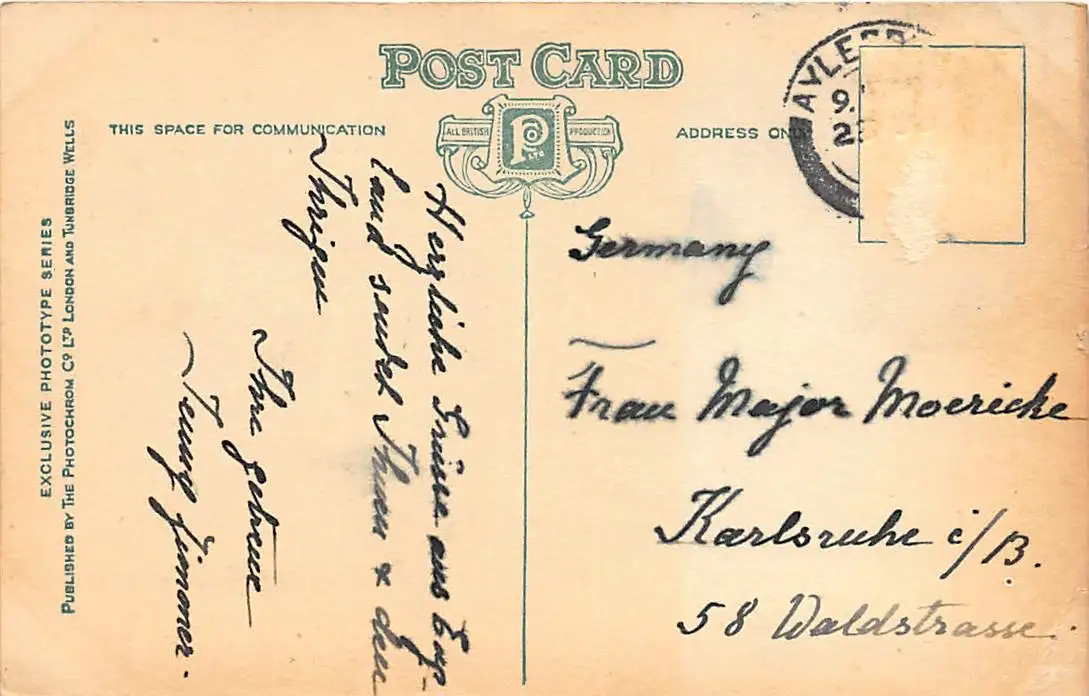 POST CARD
ALL BRITISH PRODUCTION
P LTD
THIS SPACE FOR COMMUNICATION
ADDRESS ON
AYLE
9.
2
EXCLUSIVE PHOTOTYPE SERIES
PUBLISHED BY THE PHOTOCHROM CO. LTD LONDON AND TUNBRIDGE WELLS
Herzliche Grüsse aus Eng-
land sendet Ihnen & den
Ihrigen
Ihre getreue
Germany
Frau Major Moericke
Karlsruhe i/B.
58 Waldstrasse.